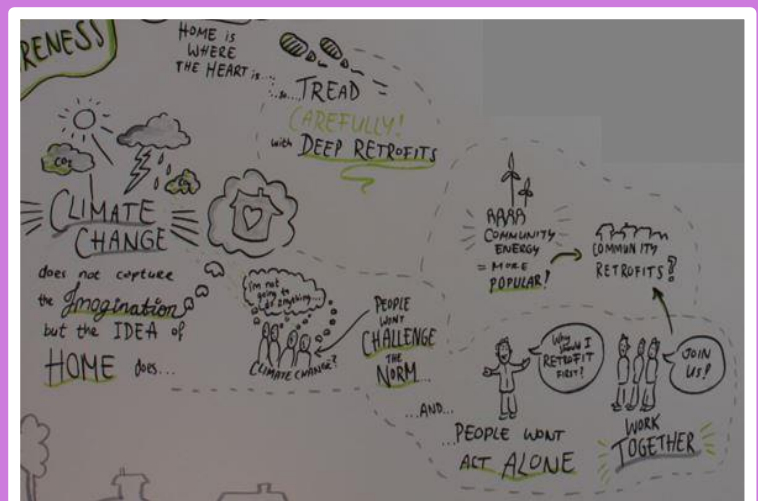 RENESS
HOME IS
WHERE
THE HEART is...
...so... TREAD
CAREFULLY!
with DEEP RETROFITS
CO2
CLIMATE
CHANGE
does not capture
the Imagination
but the IDEA of
HOME does...
I'm not
going to
do anything...
CLIMATE CHANGE?
PEOPLE
WONT
CHALLENGE
THE
NORM...
...AND...
...PEOPLE WONT
ACT ALONE
Why
should I
RETROFIT
FIRST?
COMMUNITY
ENERGY
= MORE
POPULAR!
COMMUNITY
RETROFITS?
JOIN
US!
WORK
TOGETHER